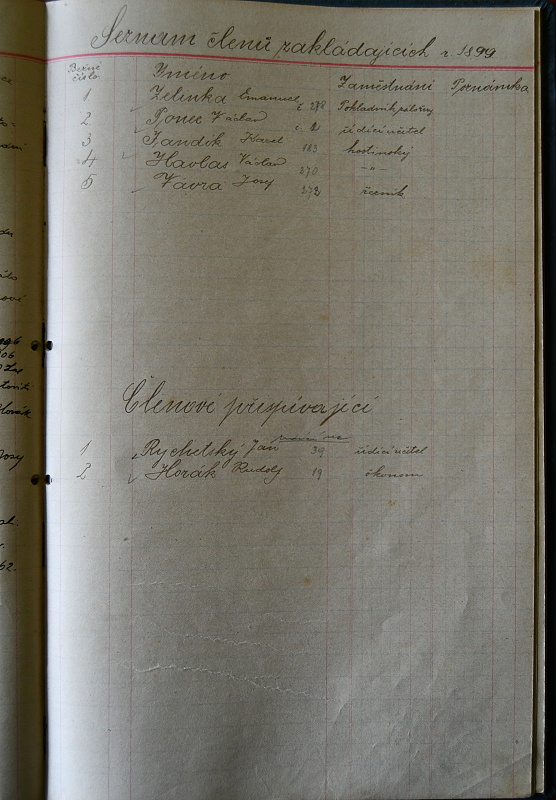 Seznam členů zakládajících r. 1899
Běžné číslo Jméno Zaměstnání Poznámka
1 Zelinka Emanuel č. 278 Pokladník záložny
2 Ponec Václav č. 2 řídící učitel
3 Jandík Karel 183 hostinský
4 Havlas Václav 270 -"-
5 Vávra Josef 273 řezník
Členové přispívající
1 Rychetský Jan 39 řídící učitel
2 Horák Rudolf 19 ekonom